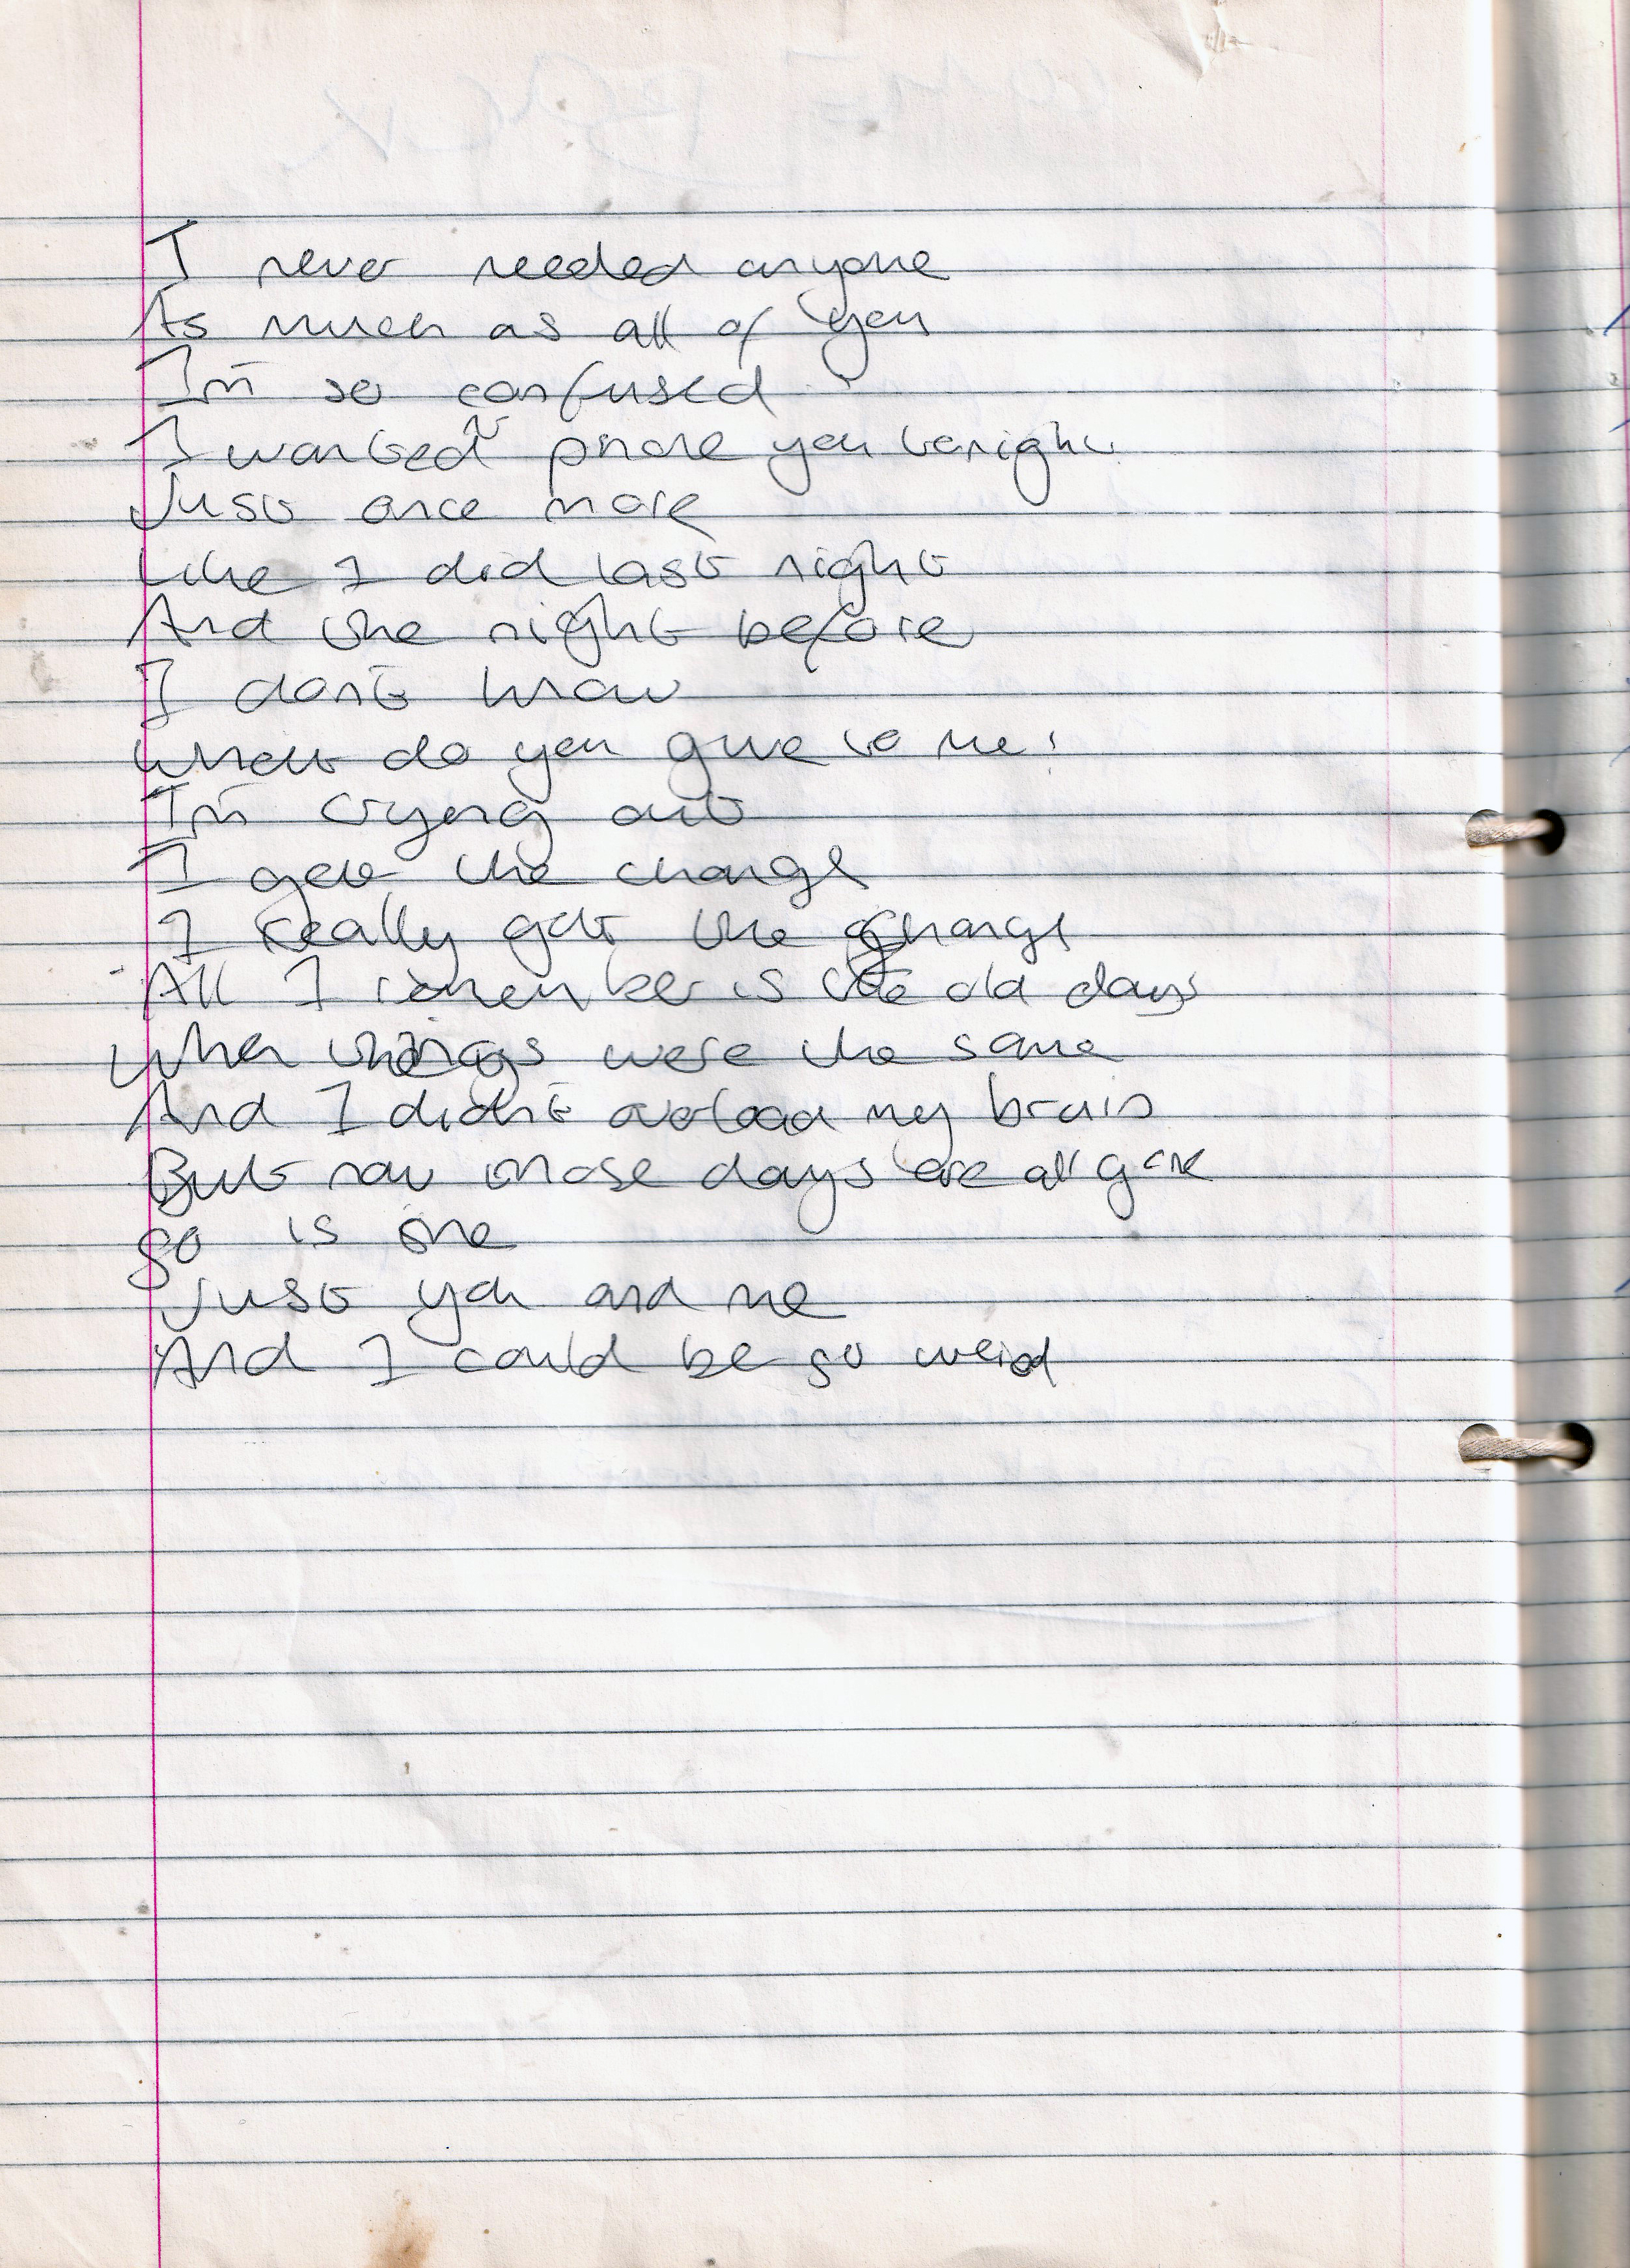 I never needed anyone
As much as all of you
I'm so confused
I wanted to phone you tonight
Just once more
Like I did last night
And the night before
I don't know
What do you give to me?
I'm crying out
I get the change
I really get the change
All I remember is the old days
When things were the same
And I didn't overload my brain
But now those days are all gone
So is she
Just you and me
And I could be so weird